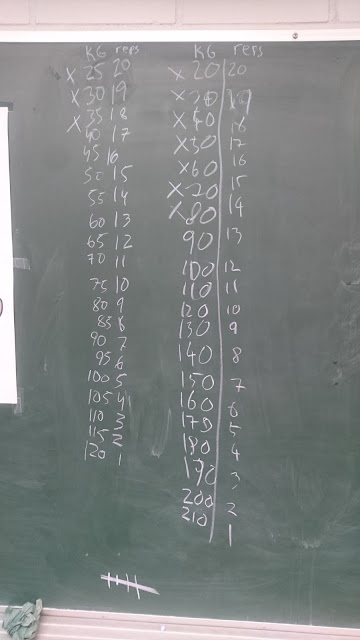 KG reps
x 25 20
x 30 19
x 35 18
40 17
45 16
50 15
55 14
60 13
65 12
70 11
75 10
80 9
85 8
90 7
95 6
100 5
105 4
110 3
115 2
120 1
KG reps
x 20 20
x 30 19
x 40 18
x 50 17
x 60 16
x 70 15
x 80 14
90 13
100 12
110 11
120 10
130 9
140 8
150 7
160 6
170 5
180 4
190 3
200 2
210 1